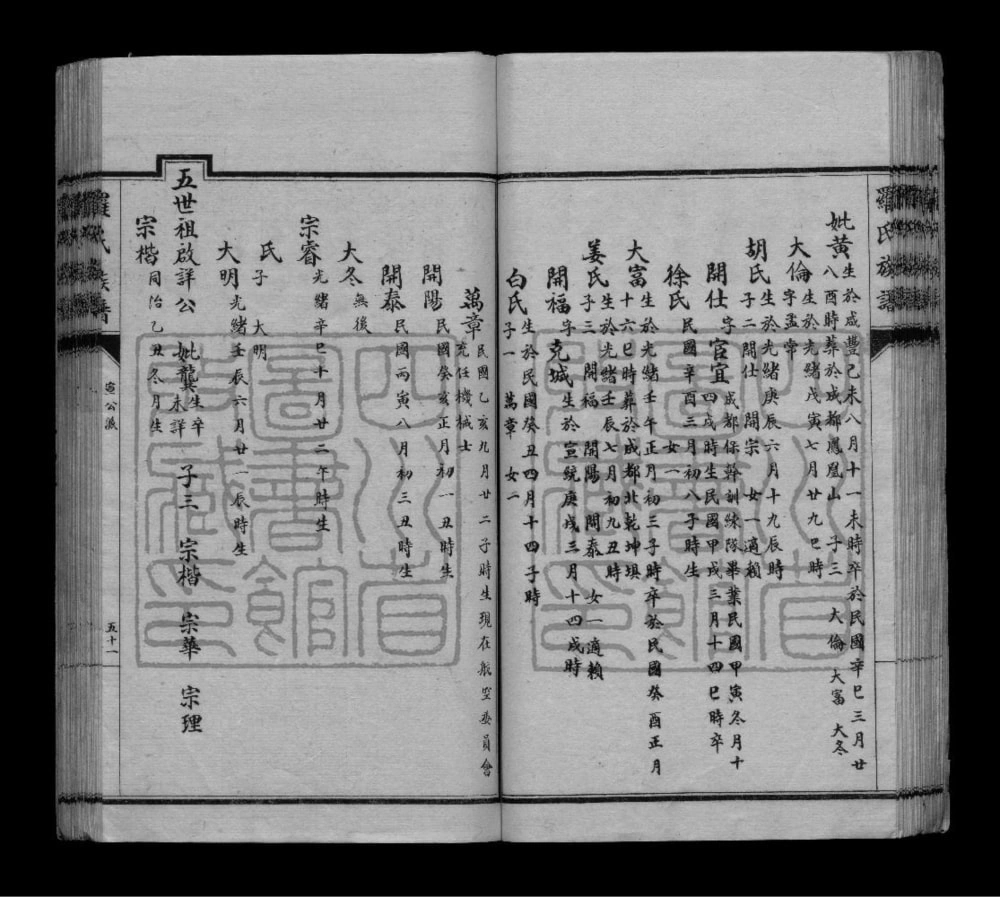 羅氏族譜
妣黃 生於咸豐己未八月十一未時卒於民國辛巳三月廿
八酉時葬於成都鳳凰山 子三 大倫 大富 大冬
大倫 字孟常 生於光緒戊寅七月廿九巳時
胡氏 生於光緒庚辰六月十九辰時
子二 開仕 開宗 女一適賴
開仕 字官宜 成都保幹訓練隊畢業民國甲寅冬月十
四戌時生民國甲戌三月十四巳時卒
徐氏 民國辛酉三月初八子時生
女一
大富 生於光緒壬午正月初三子時卒於民國癸酉正月
十六巳時葬於成都北乾坤垻
姜氏 生於光緒壬辰七月初九丑時
子三 開福 開陽 開泰 女一適賴
開福 字克城 生於宣統庚戌三月十四戌時
白氏 生於民國癸丑四月十四子時
子一 萬章 女二
萬章 民國乙亥九月廿二子時生現在航空委員會
充任機械士
開陽 民國癸亥正月初一丑時生
開泰 民國丙寅八月初三丑時生
大冬 無後
宗睿 光緒辛巳十月廿二午時生
氏 子 大明
大明 光緒壬辰六月廿一辰時生
五世祖啟詳公 妣龔 生卒未詳 子三 宗楷 宗華 宗理
宗楷 同治乙丑冬月生
羅氏族譜
公派
五十一
四川省圖書館藏
四川省圖書館藏